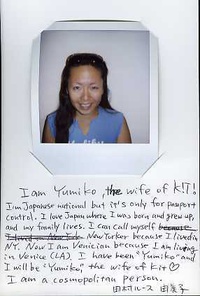 I am Yumiko, the wife of KIT!
I'm Japanese national but it's only for passport
control. I love Japan where I was born and grew up,
and my family lives. I can call myself because
I lived in New York New Yorker because I lived in
NY. Now I am Venician because I am living
in Venice (LA). I have been "Yumiko" and
I will be "Yumiko", the wife of Kit♡
I am a cosmopolitan person.
田村ルース 由美子